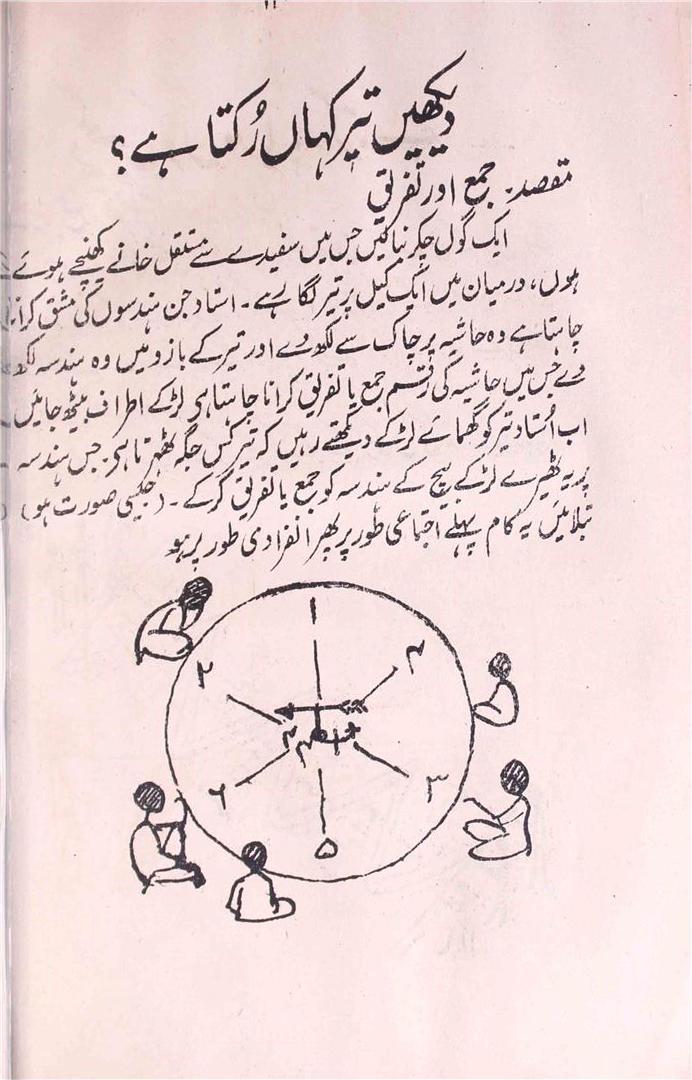 ۱۱
دیکھیں تیر کہاں رُکتا ہے؟
مقصد۔ جمع اور تفریق
ایک گول چکر بنائیں جس میں سفیدے سے مستقل خانے کھنچے ہوئے
ہوں، درمیان میں ایک کیل پر تیر لگا رہے۔ استاد جن ہندسوں کی مشق کرانی
چاہتا ہے وہ حاشیہ پر چاک سے لکھ دے اور تیر کے بازو میں وہ ہندسہ لکھ
دے جس میں حاشیہ کی رقم جمع یا تفریق کرانا چاہتا ہی لڑکے اطراف بیٹھ جائیں
اب اُستاد تیر کو گھمائے لڑکے دیکھتے رہیں کہ تیر کس جگہ ٹھہرتا ہی۔ جس ہندسہ
پر یہ ٹھیرے لڑکے بیچ کے ہندسہ کو جمع یا تفریق کرکے۔ (جیسی صورت ہو)
بتلائیں یہ کام پہلے اجتماعی طور پر پھر انفرادی طور پر ہو
۱
۲
۴
۶
۳
۵